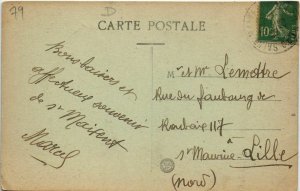 79
D
CARTE POSTALE
10c
Bons baisers et
affectueux souvenir
de St Maixent
Marcel
Mr et Mme Lemettre
Rue du faubourg de
Roubaix 117
à
St Maurice Lille
(Nord)